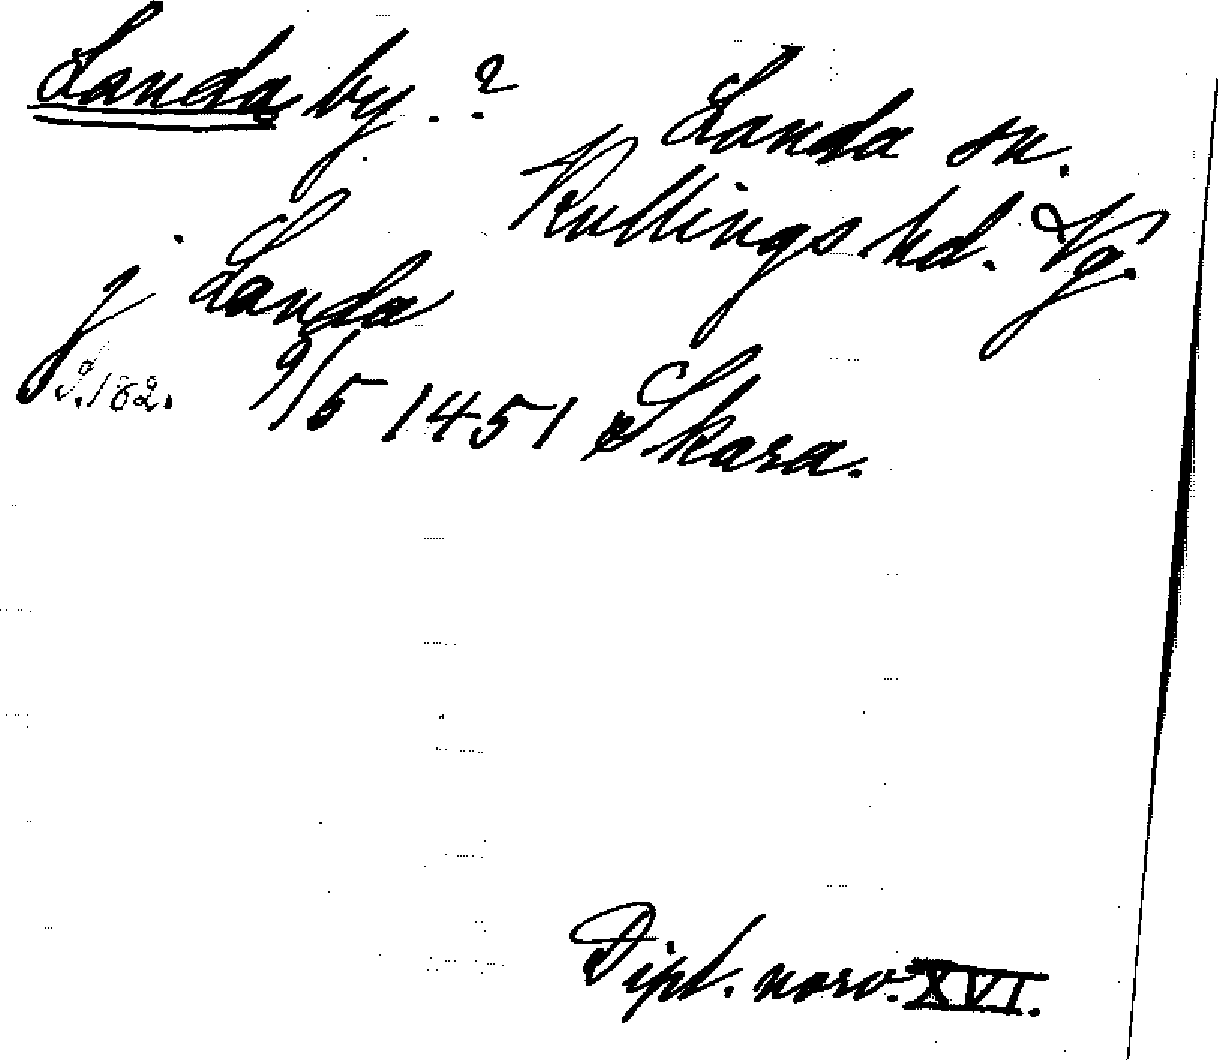 Landa by. ?
Landa sn.
Kullings hd. Vg.
j Landa
s. 182. 9/5 1451 Skara.
Dipl. norv. XVI.